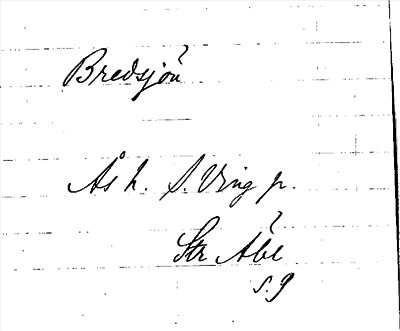 Bredsjön
Ås h. S. Ving p.
Str Åbe
s. 9